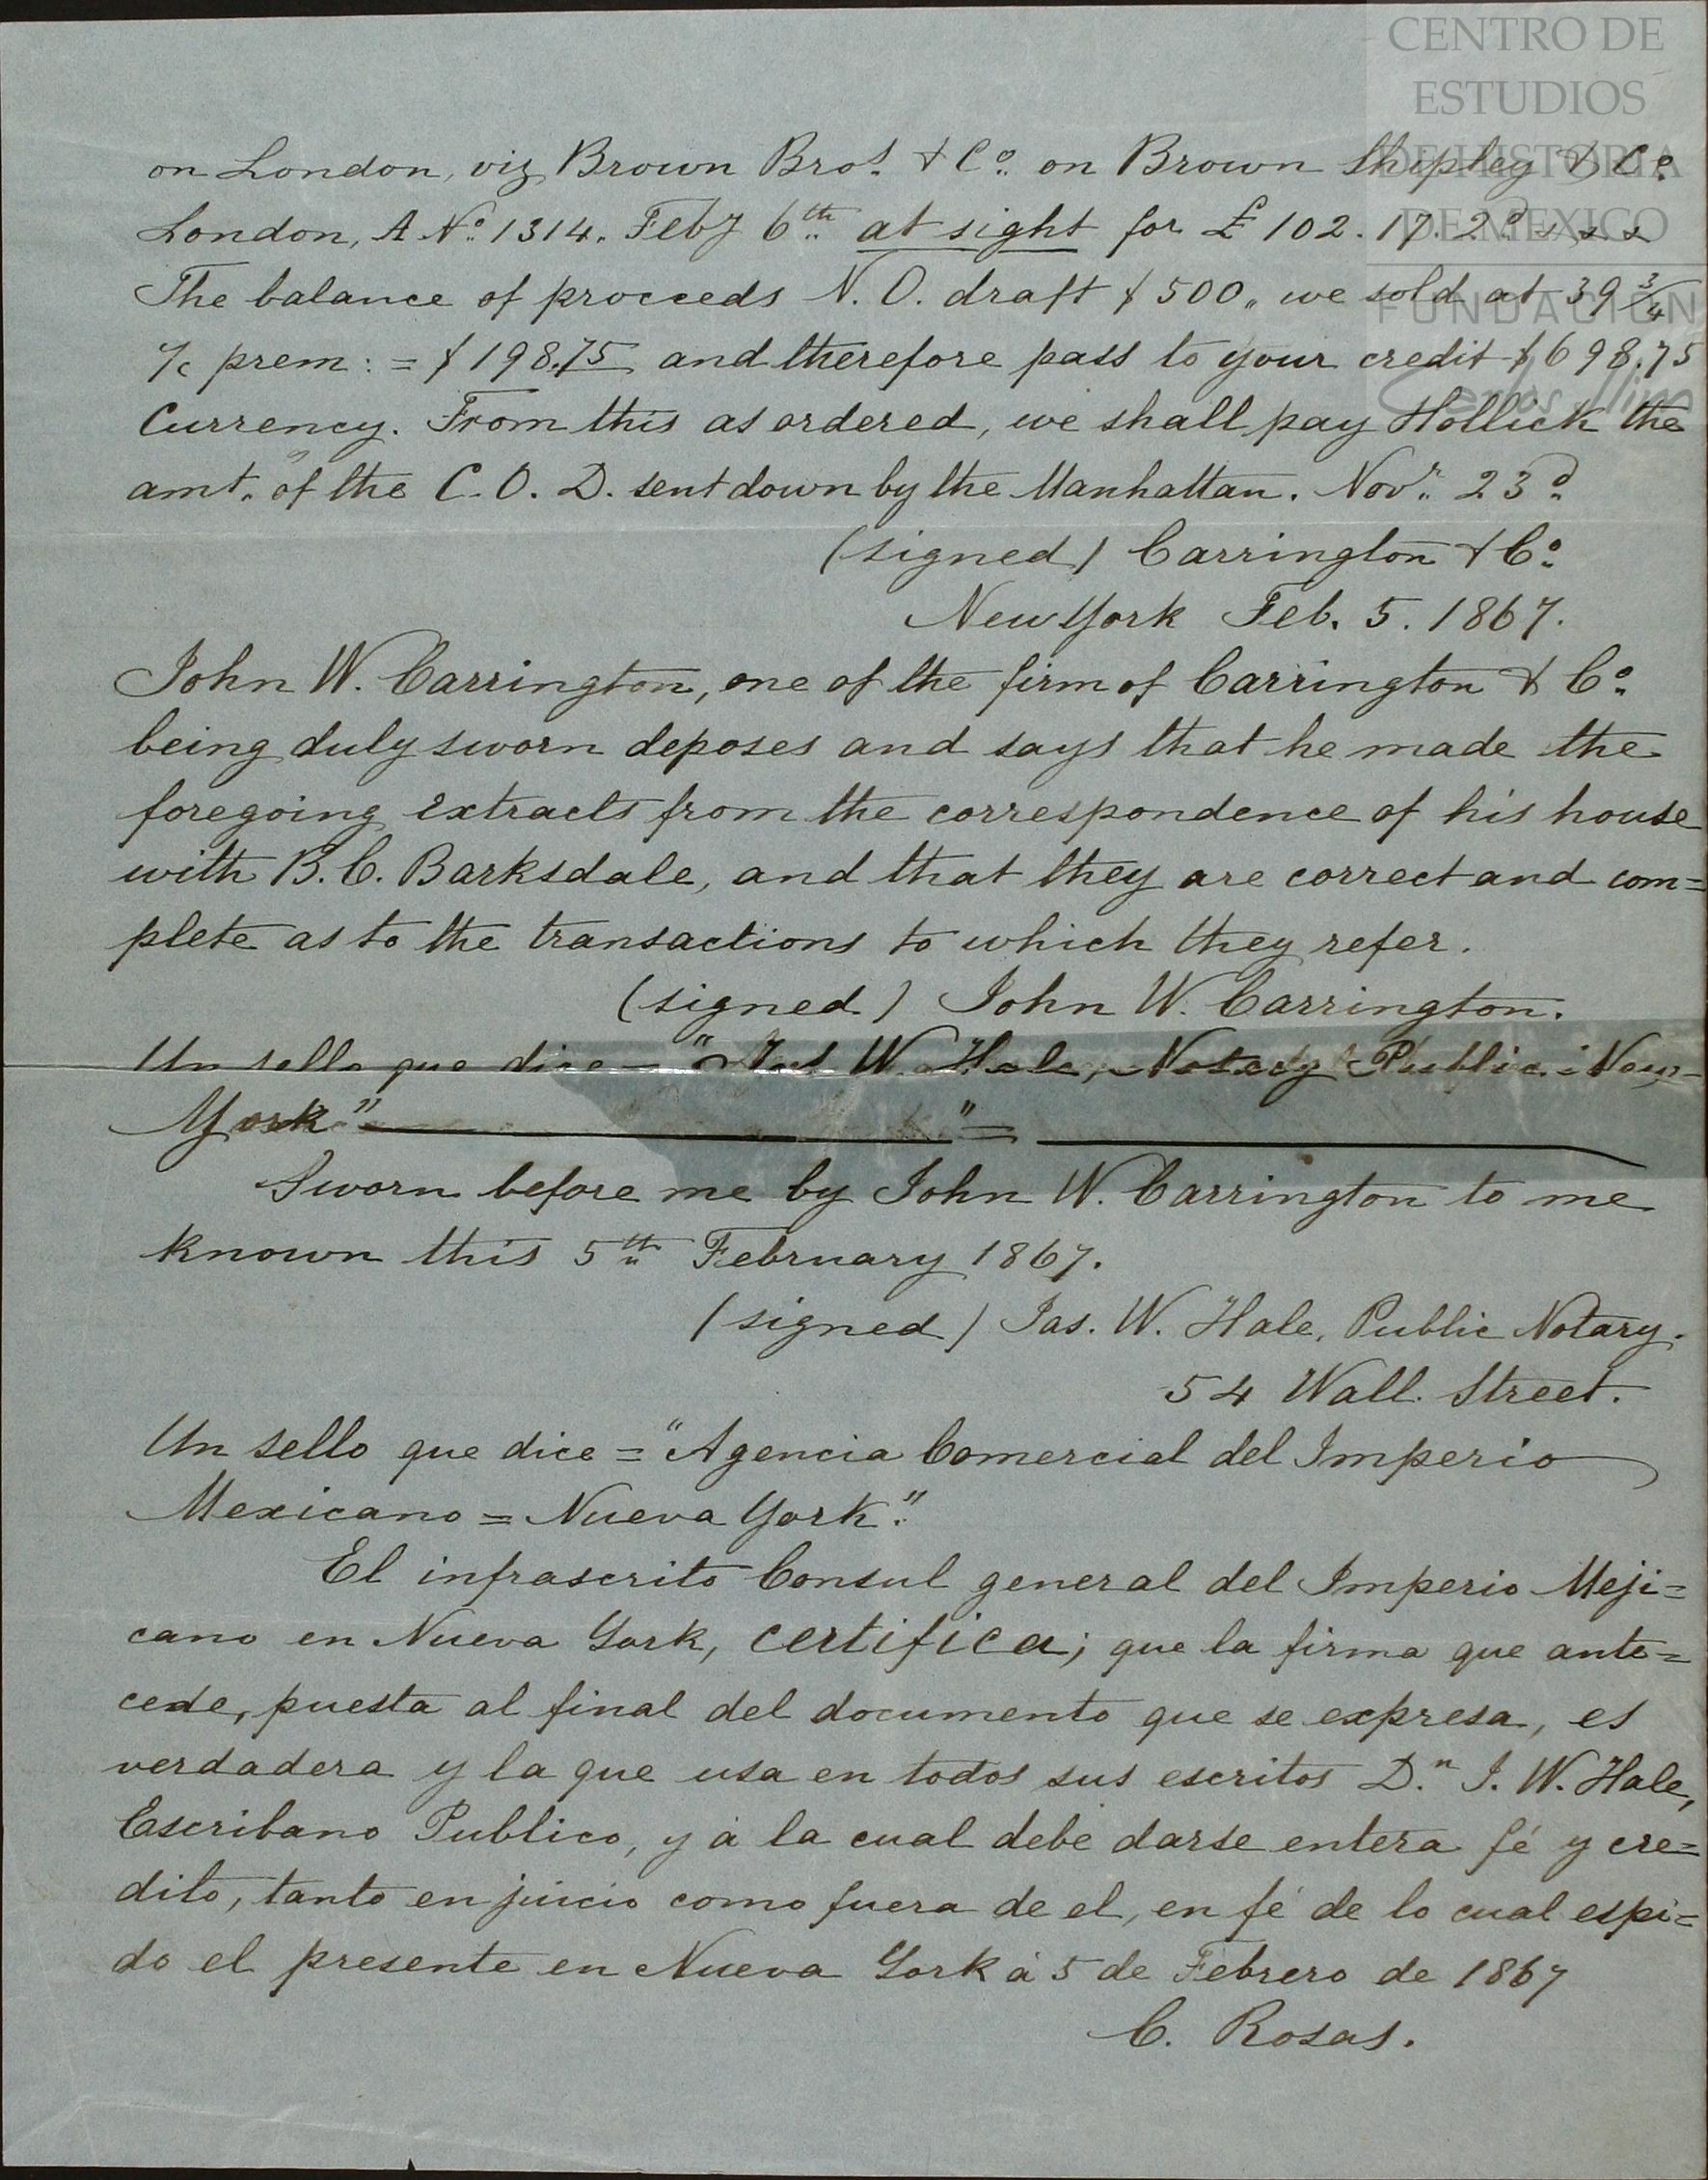 CENTRO DE
ESTUDIOS
DE HISTORIA
DE MEXICO
FUNDACIÓN
Carlos Slim
on London, viz Brown Bros. & Co. on Brown Shipley & Co.
London, A No. 1314. Feby 6th at sight for £ 102. 17. 2d
The balance of proceeds N. O. draft $ 500,, we sold at 39 3/4
% prem: = $ 198.75 and therefore pass to your credit $ 698.75
Currency. From this as ordered, we shall pay Hollick the
amt. of the C. O. D. sent down by the Manhattan. Novr. 23d
(signed) Carrington & Co.
New York Feb. 5. 1867.
John W. Carrington, one of the firm of Carrington & Co.
being duly sworn deposes and says that he made the
foregoing extracts from the correspondence of his house
with B. C. Barksdale, and that they are correct and com=
plete as to the transactions to which they refer.
(signed) John W. Carrington.
Un sello que dice = "Jas W. Hale, Notary Public: New-
York" ———— " = ————
Sworn before me by John W. Carrington to me
known this 5th February 1867.
(signed) Jas. W. Hale, Public Notary.
54 Wall. Street.
Un sello que dice = "Agencia Comercial del Imperio
Mexicano = Nueva York."
El infrascrito Consul general del Imperio Meji=
cano en Nueva York, certifica; que la firma que ante=
cede, puesta al final del documento que se expresa, es
verdadera y la que usa en todos sus escritos D.n J. W. Hale,
Escribano Publico, y á la cual debe darse entera fé y cre=
dito, tanto en juicio como fuera de el, en fé de lo cual espi=
do el presente en Nueva York á 5 de Febrero de 1867
C. Rosas.